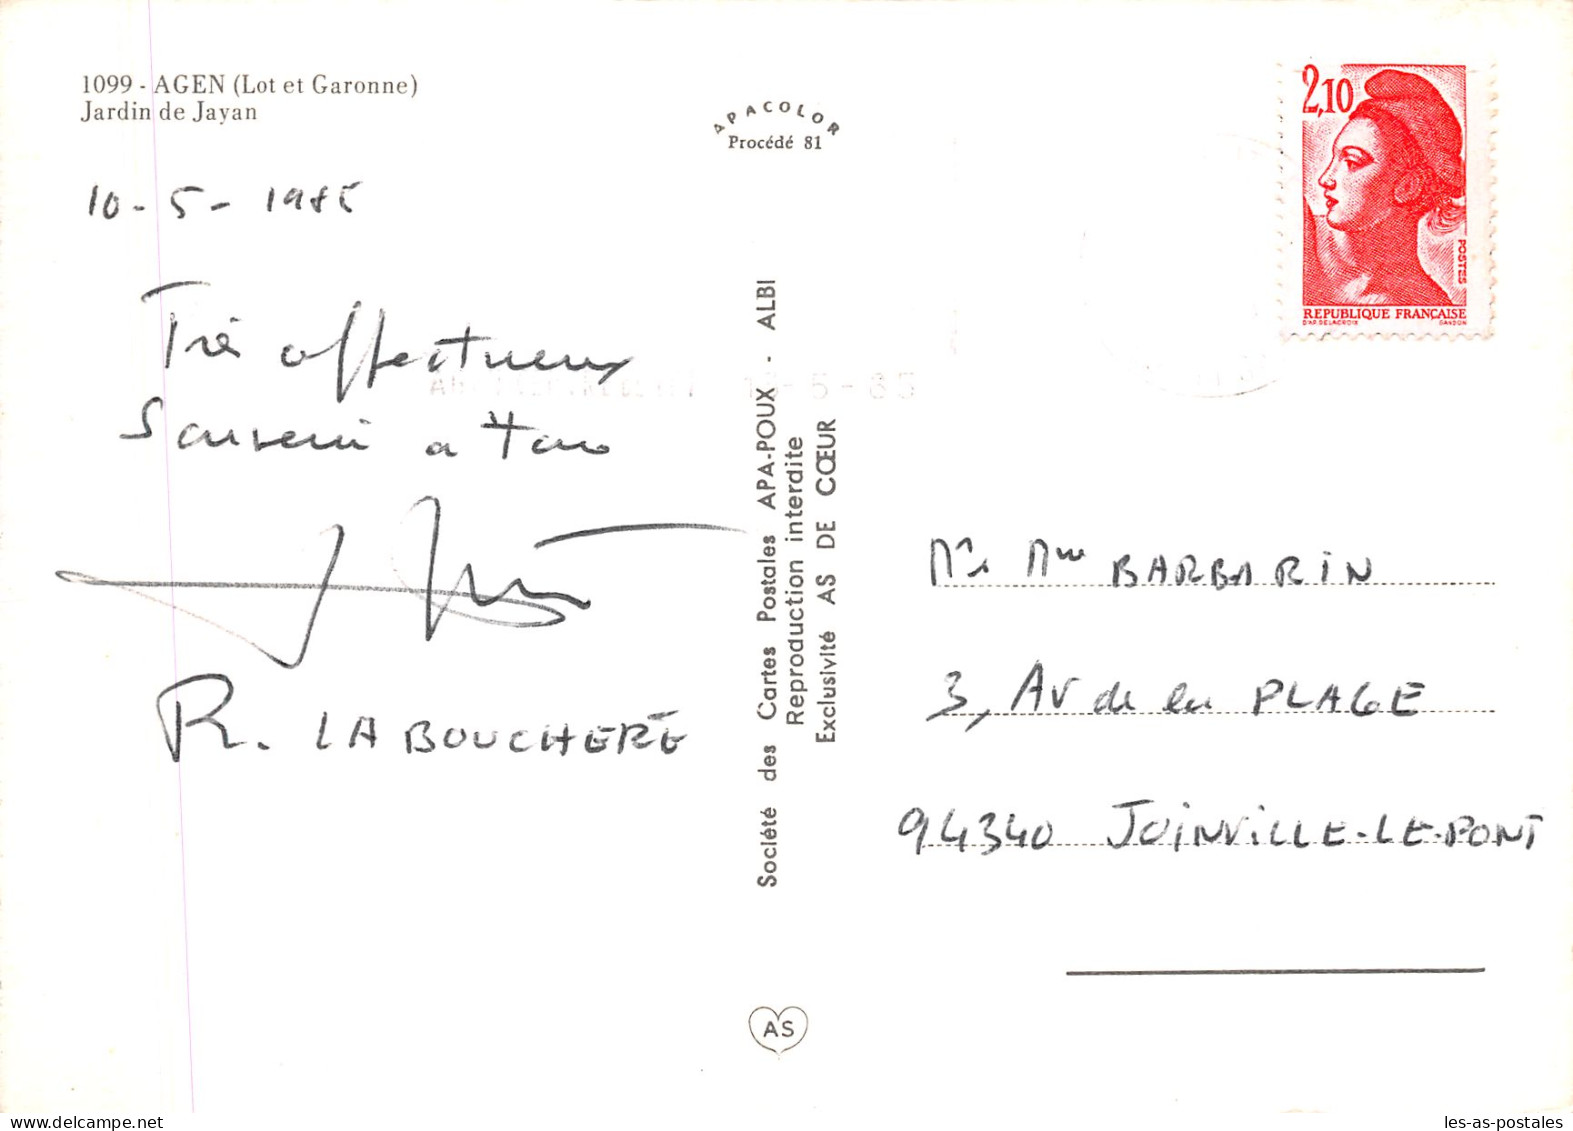 1099 - AGEN (Lot et Garonne)
Jardin de Jayan
APACOLOR
Procédé 81
10 - 5 - 1985
Très affectueux
Souvenir a tous
R. LABOUCHERE
Société des Cartes Postales APA-POUX - ALBI
Reproduction interdite
Exclusivité AS DE CŒUR
AS
2,10
POSTES
REPUBLIQUE FRANÇAISE
D'AP. DELACROIX GANDON
5 - 85
Mr Mme BARBARIN
3, AV de la PLAGE
94340 JOINVILLE-LE-PONT
les-as-postales